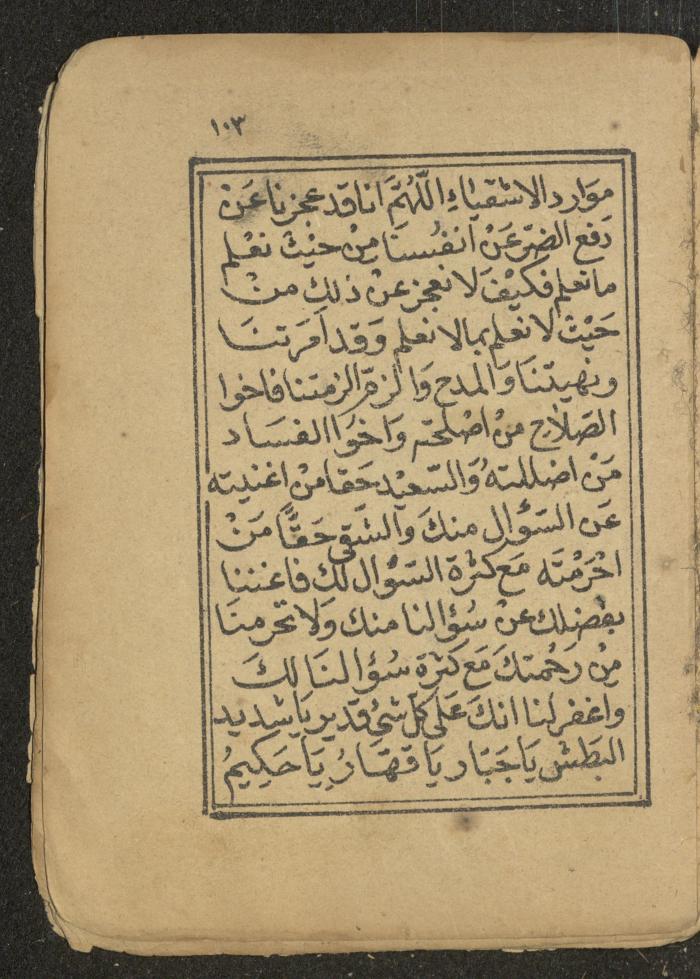 ١٠٣
موَارد الاشقيَاءِ اللّهُمَّ انا قد عجزنا عَنْ
دَفع الضرّ عَنْ اَنفُسنَا مِنْ حَيْثُ نعْلم
ما نعلم فكيْفَ لا نعجز عنْ ذلِكَ منْ
حَيْثُ لا نعْلم بمالا نعْلم وَقد اَمَرتنَا
ونهيتنَا وَالمدح وَالزمّ الزمتنا فاخوا
الصَلَاحِ منْ اصْلحتَه وَاخوُا الفسَاد
مَنْ اضللتهُ وَالسّعيْد حَقا منْ اغنيته
عَن السّؤال منكَ وَالشّقى حَقًّا مَنْ
احْرَمْتَه مَع كثْرة السّؤال لكَ فاغننا
بفضلك عنْ سُؤالنا منك وَلا تحرمنَا
مِنْ رَحْمتكَ مَع كثرَة سُؤالنَا لكَ
واغفر لنا انكَ عَلى كلّ شئ قدير يَا شديد
البَطش يَا جَبّار يَا قهَارُ يَا حَكِيمُ